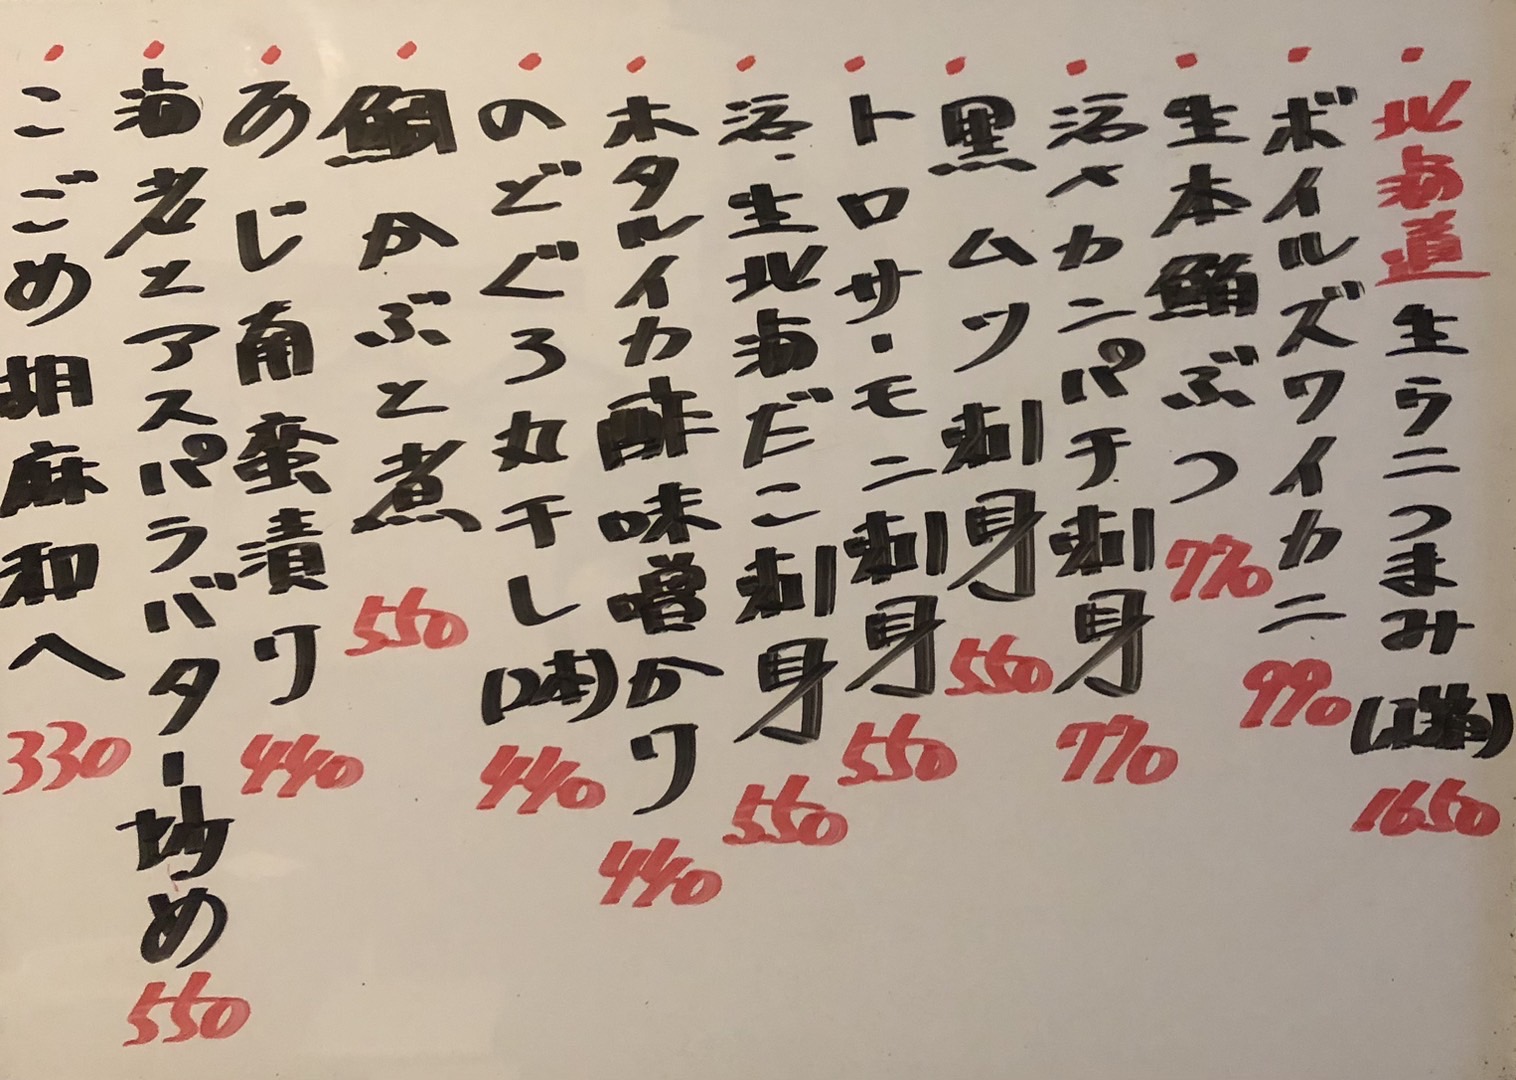 ・北海道生ウニつまみ 1650
・ボイルズワイカニ 990
・生本鮪ぶつ 770
・活〆カンパチ刺身 770
・黒ムツ刺身 550
・トロサーモン刺身 550
・活・生北海だこ刺身 550
・ホタルイカ酢味噌かけ 440
・のどぐろ丸干し(2本) 440
・鯛かぶと煮 550
・あじ南蛮漬け 440
・海老とアスパラバター炒め 550
・こごめ胡麻和へ 330